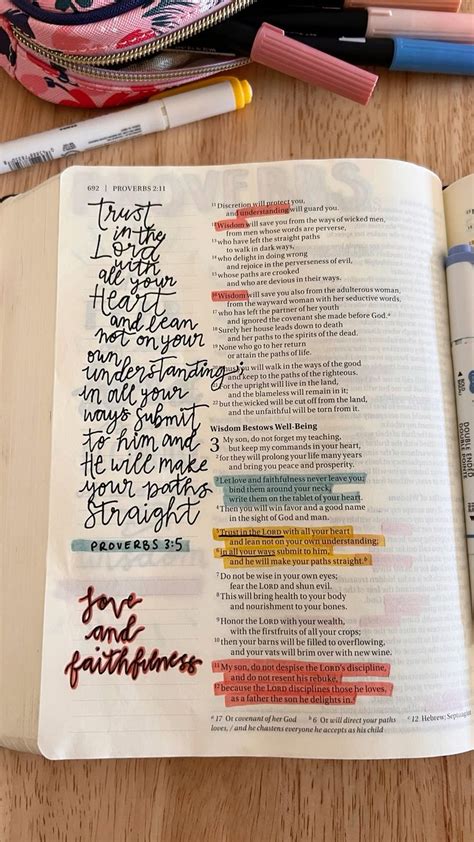 692 | PROVERBS 2:11
Trust
in the
Lord
with
all your
Heart
and lean
not on your
own
understanding;
in all your
ways submit
to him and
He will make
your paths
Straight
PROVERBS 3:5
love
and
faithfulness
11 Discretion will protect you,
and understanding will guard you.
12 Wisdom will save you from the ways of wicked men,
from men whose words are perverse,
13 who have left the straight paths
to walk in dark ways,
14 who delight in doing wrong
and rejoice in the perverseness of evil,
15 whose paths are crooked
and who are devious in their ways.
16 Wisdom will save you also from the adulterous woman,
from the wayward woman with her seductive words,
17 who has left the partner of her youth
and ignored the covenant she made before God.a
18 Surely her house leads down to death
and her paths to the spirits of the dead.
19 None who go to her return
or attain the paths of life.
you will walk in the ways of the good
and keep to the paths of the righteous.
For the upright will live in the land,
and the blameless will remain in it;
22 but the wicked will be cut off from the land,
and the unfaithful will be torn from it.
Wisdom Bestows Well-Being
3 My son, do not forget my teaching,
but keep my commands in your heart,
2 for they will prolong your life many years
and bring you peace and prosperity.
3 Let love and faithfulness never leave you;
bind them around your neck,
write them on the tablet of your heart.
4 Then you will win favor and a good name
in the sight of God and man.
5 Trust in the LORD with all your heart
and lean not on your own understanding;
6 in all your ways submit to him,
and he will make your paths straight.b
7 Do not be wise in your own eyes;
fear the LORD and shun evil.
8 This will bring health to your body
and nourishment to your bones.
9 Honor the LORD with your wealth,
with the firstfruits of all your crops;
10 then your barns will be filled to overflowing,
and your vats will brim over with new wine.
11 My son, do not despise the LORD's discipline,
and do not resent his rebuke,
12 because the LORD disciplines those he loves,
as a father the son he delights in.
a 17 Or covenant of her God b 6 Or will direct your paths c 12 Hebrew;
loves, / and he chastens everyone he accepts as his child
DOUBLE ENDED